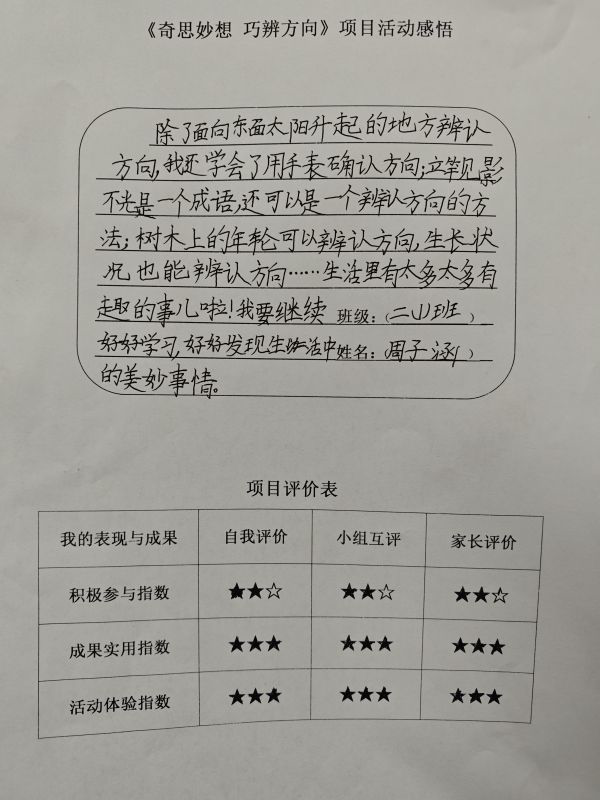 《奇思妙想 巧辨方向》项目活动感悟
除了面向东面太阳升起的地方辨认
方向,我还学会了用手表确认方向;立竿见影
不光是一个成语,还可以是一个辨认方向的方
法;树木上的年轮可以辨认方向,生长状
况也能辨认方向……生活里有太多太多有
趣的事儿啦!我要继续 班级:(二山班 )
好好学习,好好发现生活中 姓名:(周子涵 )
的美妙事情。
项目评价表
我的表现与成果 自我评价 小组互评 家长评价
积极参与指数 ★★☆ ★★☆ ★★☆
成果实用指数 ★★★ ★★★ ★★★
活动体验指数 ★★★ ★★★ ★★★